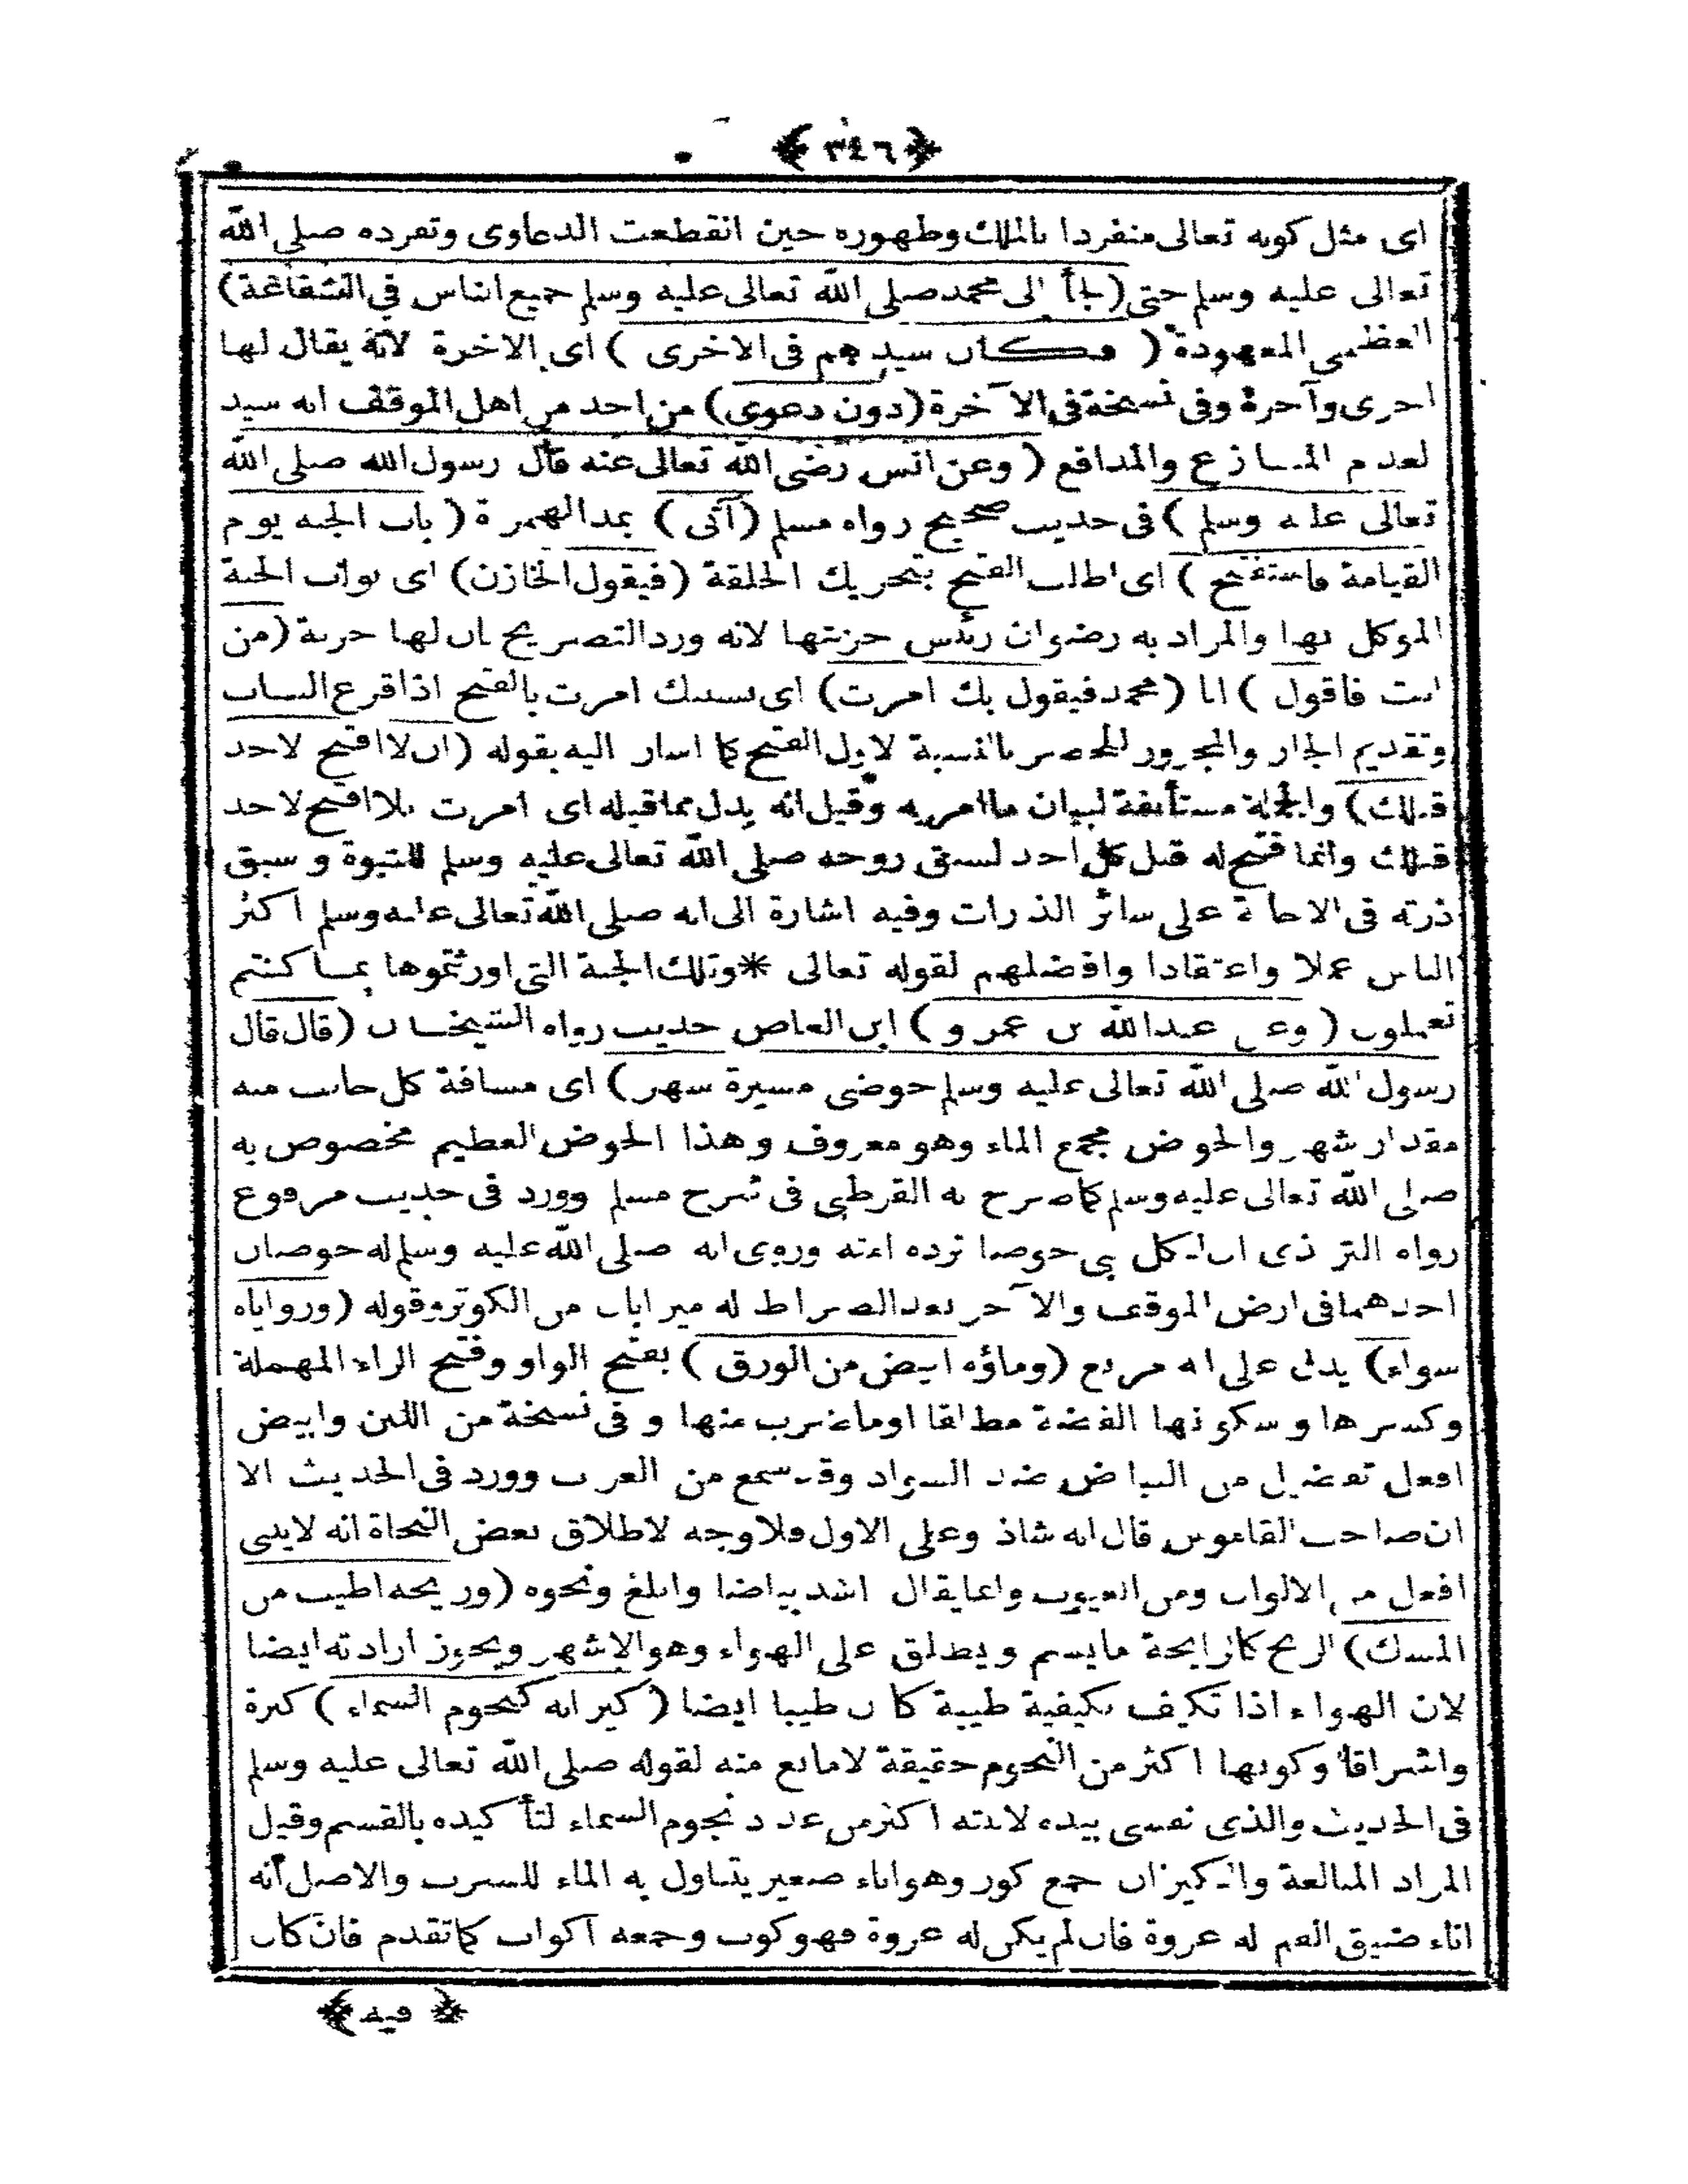 ﴿ ٣٤٦ ﴾
اى مثل كونه تعالى منفردا بالملك وظهوره حين انقطعت الدعاوى وتفرده صلى الله
تعالى عليه وسلم حتى (لجأ الى محمد صلى الله تعالى عليه وسلم جميع الناس فى الشفاعة)
العظمى المعهودة (فكان سيدهم فى الاخرى) اى الاخرة لانه يقال لها
اخرى وآخرة وفى نسخة فى الآخرة (دون دعوى) من احد من اهل الموقف انه سيد
لعدم المنازع والمدافع (وعن انس رضى الله تعالى عنه قال رسول الله صلى الله
تعالى عليه وسلم) فى حديث صحيح رواه مسلم (آتى) بمد الهمزة (باب الجنة يوم
القيامة فاستفتح) اى اطلب الفتح بتحريك الحلقة (فيقول الخازن) اى بواب الجنة
الموكل بها والمراد به رضوان رئيس خزنتها لانه ورد التصريح بان لها خزنة (من
انت فاقول) انا (محمد فيقول بك امرت) اى بسببك امرت بالفتح اذا قرع الباب
وتقديم الجار والمجرور للحصر بالنسبة لاول الفتح كما اشار اليه بقوله (ان لا افتح لاحد
قبلك) والجملة مستأنفة لبيان ما امر به وقيل انه بدل مما قبله اى امرت بلا افتح لاحد
قبلك وانما فتح له قبل كل احد لسبق روحه صلى الله تعالى عليه وسلم للنبوة وسبق
ذرته فى الاجابة على سائر الذرات وفيه اشارة الى انه صلى الله تعالى عليه وسلم اكثر
الناس عملا واعتقادا وافضلهم لقوله تعالى * وتلك الجنة التى اورثتموها بما كنتم
تعملون (وعن عبدالله بن عمرو) ابن العاص حديث رواه الشيخان (قال قال
رسول الله صلى الله تعالى عليه وسلم حوضى مسيرة شهر) اى مسافة كل جانب منه
مقدار شهر والحوض مجمع الماء وهو معروف وهذا الحوض العظيم مخصوص به
صلى الله تعالى عليه وسلم كما صرح به القرطبى فى شرح مسلم وورد فى حديث مرفوع
رواه الترمذى ان لكل نبى حوضا ترده امته وروى انه صلى الله عليه وسلم له حوضان
احدهما فى ارض الموقف والآخر بعد الصراط له ميزابان من الكوثر وقوله (وزواياه
سواء) يدل على انه مربع (وماؤه ابيض من الورق) بفتح الواو وفتح الراء المهملة
وكسرها وسكونها الفضة مطلقا او ما ضرب منها وفى نسخة من اللبن وابيض
افعل تفضيل من البياض ضد السواد وقد سمع من العرب وورد فى الحديث الا
ان صاحب القاموس قال انه شاذ وعلى الاول فلا وجه لاطلاق بعض النحاة انه لا يبنى
افعل من الالوان ومن العيوب وانما يقال اشد بياضا وابلغ ونحوه (وريحه اطيب من
المسك) الريح كالرايحة ما يشم ويطلق على الهواء وهو الاشهر ويجوز ارادته ايضا
لان الهواء اذا تكيف بكيفية طيبة كان طيبا ايضا (كيزانه كنجوم السماء) كثرة
واشراقا وكونها اكثر من النجوم حقيقة لا مانع منه لقوله صلى الله تعالى عليه وسلم
فى الحديث والذى نفسى بيده لآنيته اكثر من عدد نجوم السماء لتأكيده بالقسم وقيل
المراد المبالغة والكيزان جمع كوز وهو اناء صغير يتناول به الماء للشرب والاصل انه
اناء ضيق الفم له عروة فان لم يكن له عروة فهو كوب وجمعه اكواب كما تقدم فان كان
﴿ فيه ﴾